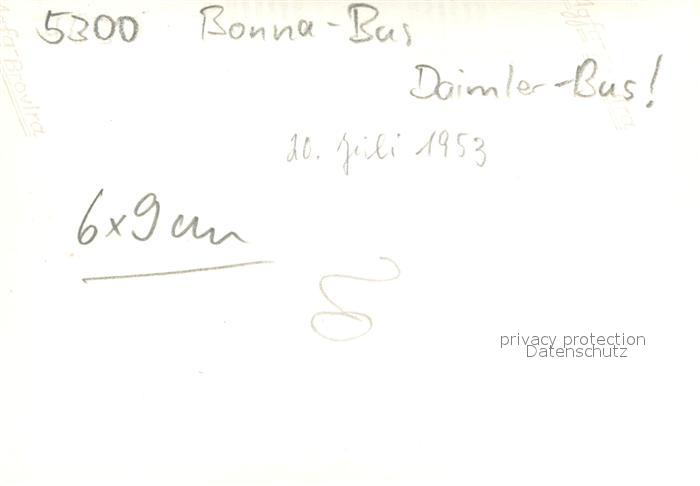 5300 Bonna-Bus
Daimler-Bus!
20. Juli 1953
6x9 cm
privacy protection
Datenschutz
Agfa-Brovira
Agfa